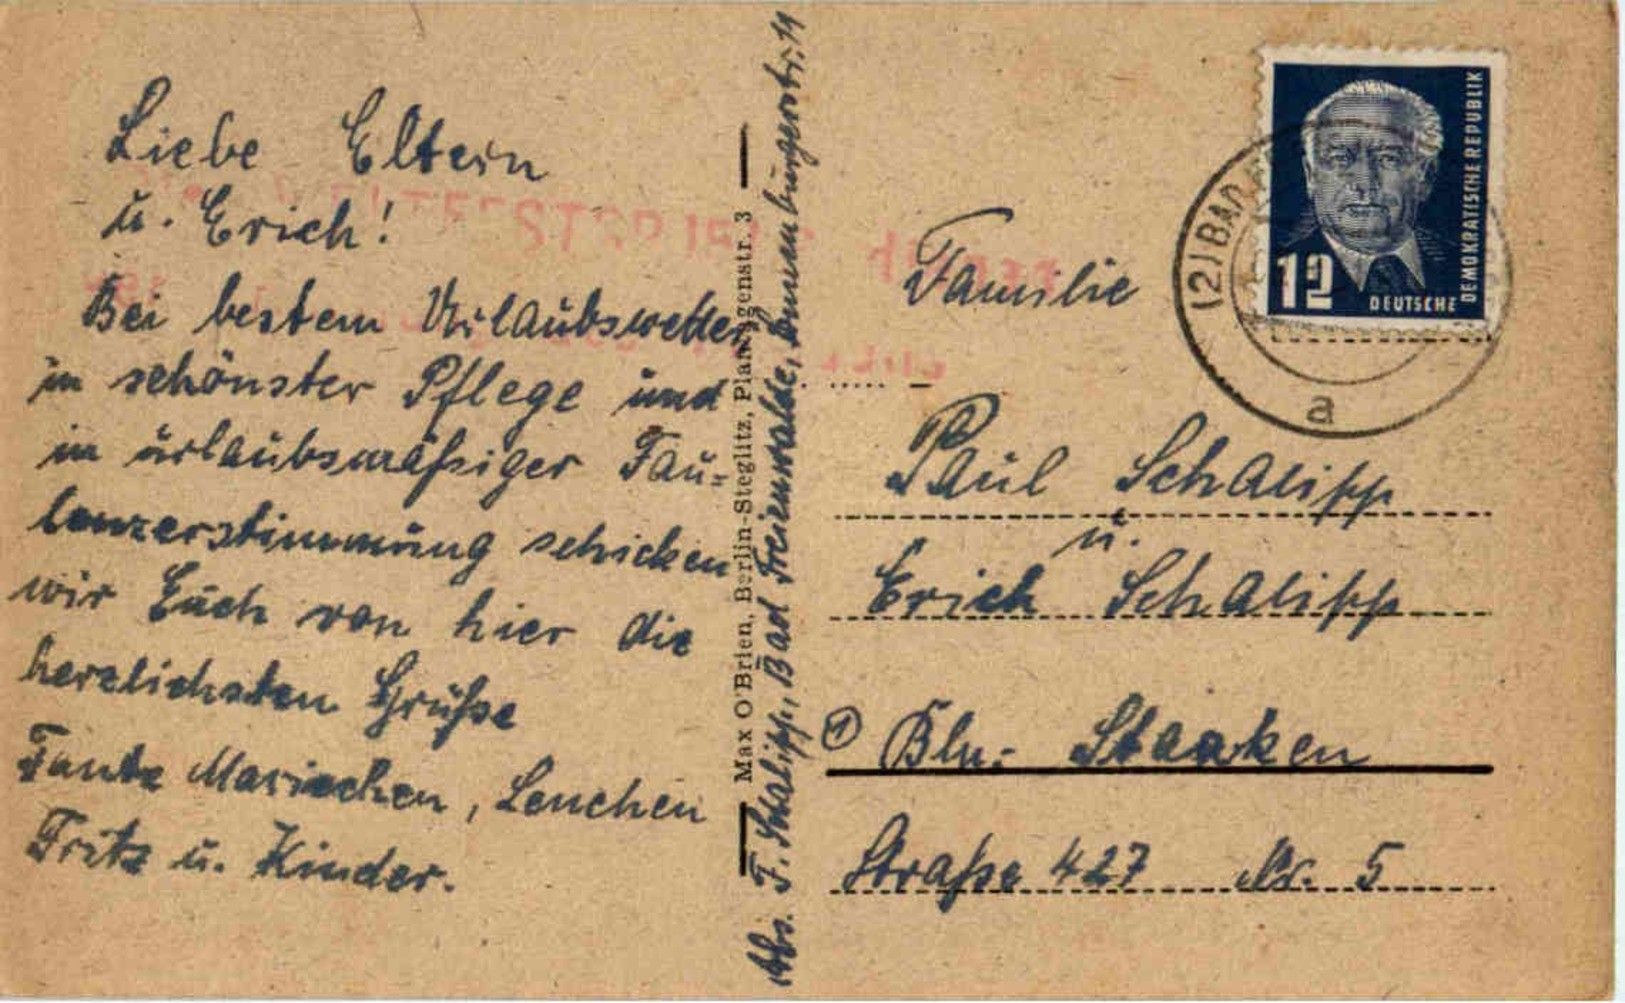 Liebe Eltern
u. Erich!
Bei bestem Urlaubswetter,
in schönster Pflege und
in urlaubsmäßiger Fau-
lenzerstimmung schicken
wir Euch von hier die
herzlichsten Grüße
Tante Mariechen, Lenchen
Fritz u. Kinder.
Max O'Brien, Berlin-Steglitz, Plantagenstr. 3
Abs. F. Schalipp, Bad Freienwalde,
12
DEUTSCHE
DEMOKRATISCHE REPUBLIK
(2) BAD
a
Familie
Paul Schalipp
u.
Erich Schalipp
① Bln.- Staaken
Straße 427 Nr. 5